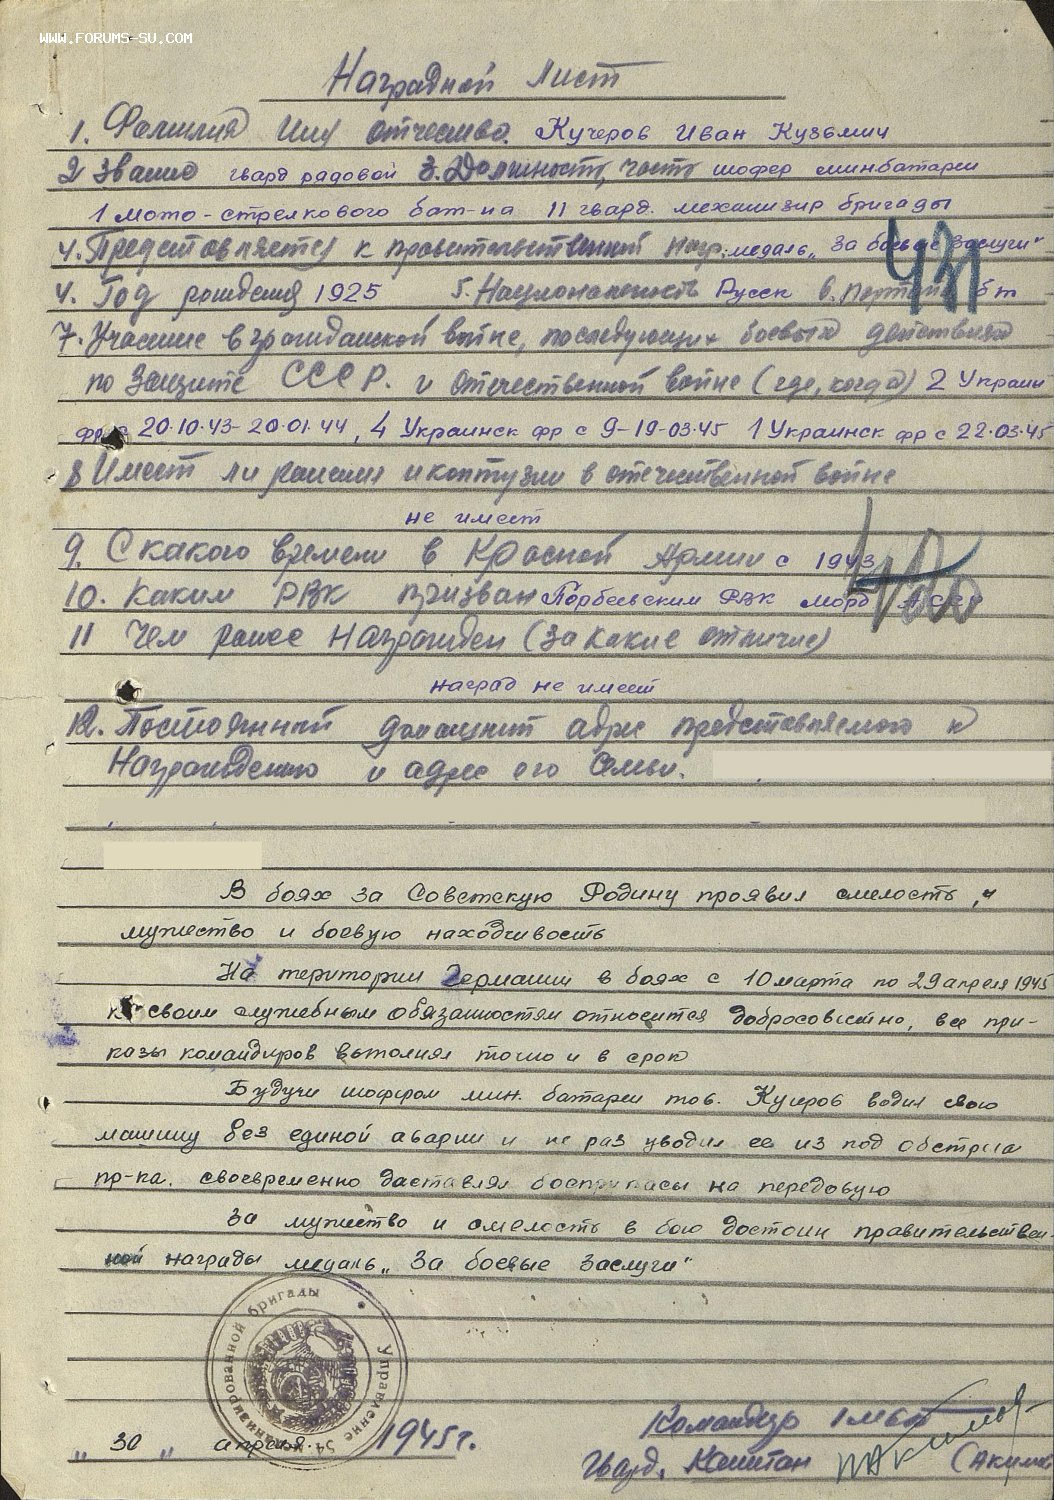 WWW.FORUMS-SU.COM
Наградной Лист
1. Фамилия Имя отчество. Кучеров Иван Кузьмич
2 Звание гвард рядовой 3. Должность, часть шофер минбатареи
1 мото-стрелкового бат-на 11 гвард. механизир бригады
4. Представляется к правительственной наgр. медаль „За боевые заслуги"
4. Год рождения 1925 5. Национальность Русск 6. Партий б/п
431
7. Участие в гражданской войне, последующих боевых действиях
по защите СССР. и отечественной войне (где, когда) 2 Украин
фр с 20.10.43-20.01.44, 4 Украинск фр с 9-19-03.45 1 Украинск фр с 22.03.45
8 Имеет ли ранения и контузии в отечественной войне
не имеет
9. С какого времени в Красной Армии с 1943
10. Каким РВК призван Торбеевским РВК морд АССР
11 Чем ранее награжден (за какие отличие)
наград не имеет
12. Постоянный домашний адрес представляемого к
Награждению и адрес его семьи.
В боях за Советскую Родину проявил смелость, и
мужество и боевую находчивость
На територии Германии в боях с 10 марта по 29 апреля 1945
к своим служебным обязанностям относится добросовестно, все при-
казы командиров выполнял точно и в срок
Будучи шофером мин. батареи тов. Кучеров водил свою
машину без единой аварии и не раз уводил ее из под обстрела
пр-ка. своевременно даставлял боеприпасы на передовую
За мужество и смелость в бою достоин правительствен-
ной награды медаль „За боевые заслуги"
Управление 54 механизированной бригады
„30„ апреля 1945 г.
Командир 1 мсб
Гвард. Капитан (Акимов